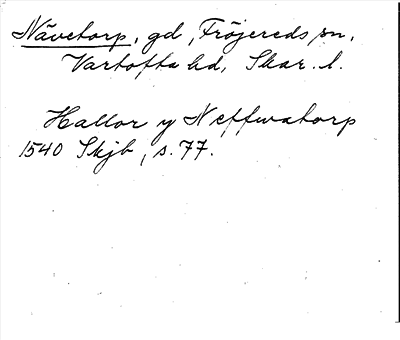 Nävetorp, gd, Fröjereds sn,
Vartofta hd, Skar. l.
Hallor y Neffwatorp
1540 Skjb, s. 77.